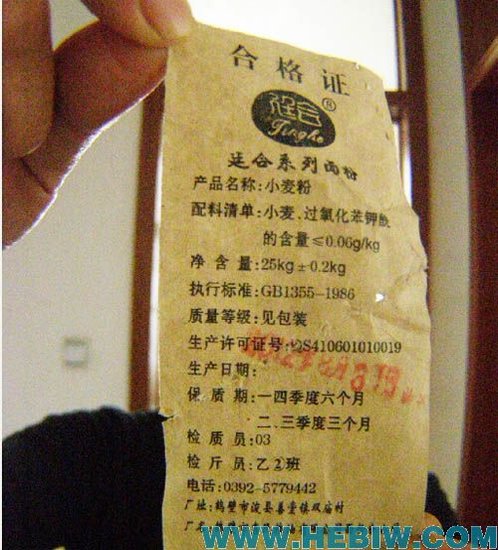 合格证
®
Jinghe
合系列面粉
产品名称:小麦粉
配料清单:小麦、过氧化苯钾酰
的含量≤0.06g/kg
净含量:25kg±0.2kg
执行标准:GB1355-1986
质量等级:见包装
生产许可证号:QS410601010019
生产日期:
保质期:一四季度六个月
二、三季度三个月
检质员:03
检斤员:乙②班
电话:0392-5779442
厂址:鹤壁市淀县
WWW.HEBIW.COM